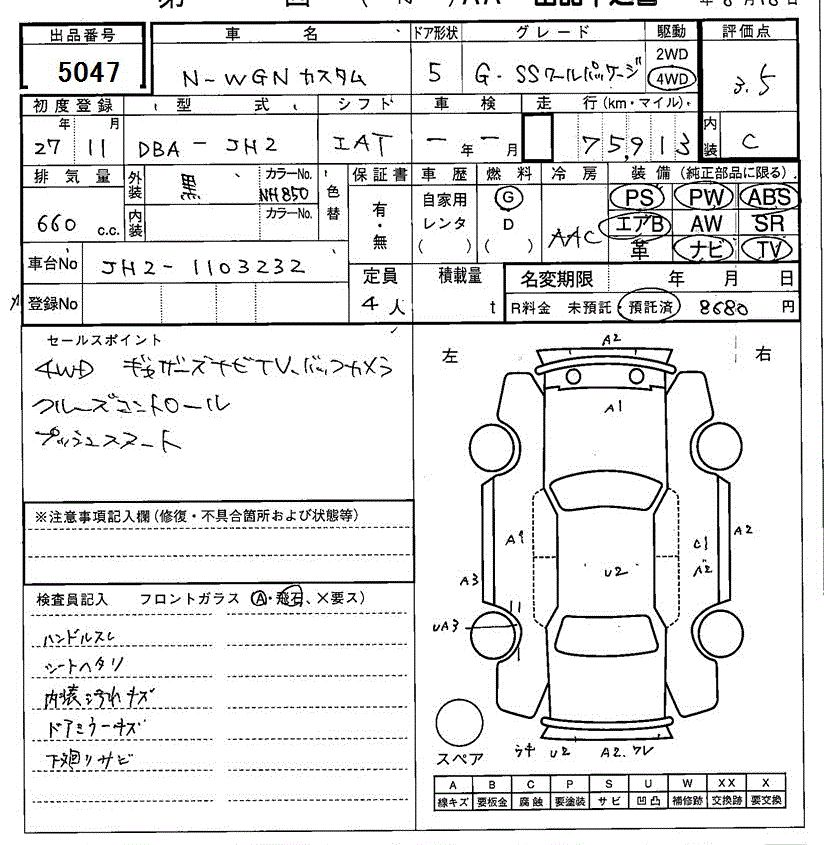 出品番号 車名 ドア形状 グレード 駆動 評価点
5047 N-WGN カスタム 5 G・SSクールパッケージ 2WD 4WD 3.5
初度登録 型式 シフト 車検 走行(km・マイル) 内装 C
27年 11月 DBA-JH2 IAT -年-月 75,913
排気量 外装 黒 カラーNo. NH850 色替 保証書 車歴 燃料 冷房 装備(純正部品に限る)
660 c.c. 内装 カラーNo. 有・無 自家用 レンタ ( ) G D ( ) AAC PS PW ABS
エアB AW SR
革 ナビ TV
車台No JH2-1103232 定員 4人 積載量 t 名変期限 年 月 日
登録No R料金 未預託・預託済 8680 円
セールスポイント
4WD ギャザーズナビTV、バックカメラ
クルーズコントロール
プッシュスタート
※注意事項記入欄(修復・不具合箇所および状態等)
検査員記入 フロントガラス(A・飛石、×要ス)
ハンドルスレ
シートヘタリ
内装汚れキズ
ドアミラーキズ
下廻りサビ
左 A2 右
A1
A1 U2 C1 A2
A3
UA3
スペア U2 A2.ワレ
A B C P S U W XX X
線キズ 要板金 腐蝕 要塗装 サビ 凹凸 補修跡 交換跡 要交換